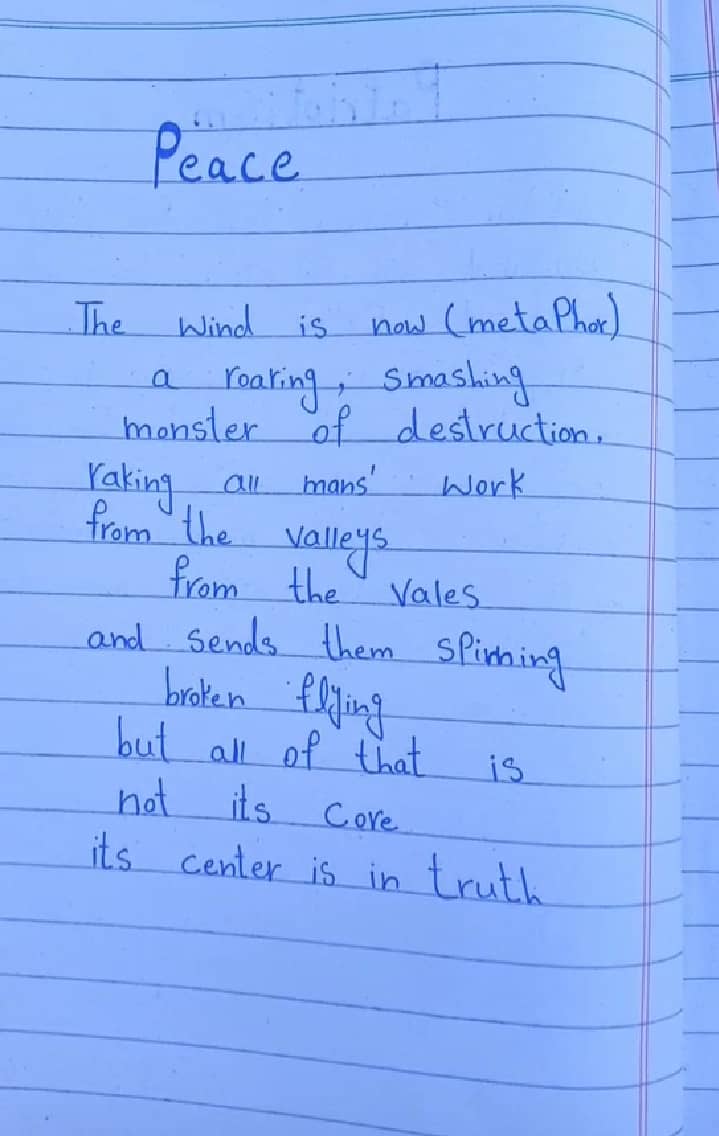 Peace
The wind is now (metaPhor)
a roaring, smashing
monster of destruction.
raking all mans' work
from the valleys
from the vales
and sends them spinning
broken flying
but all of that is
not its core
its center is in truth